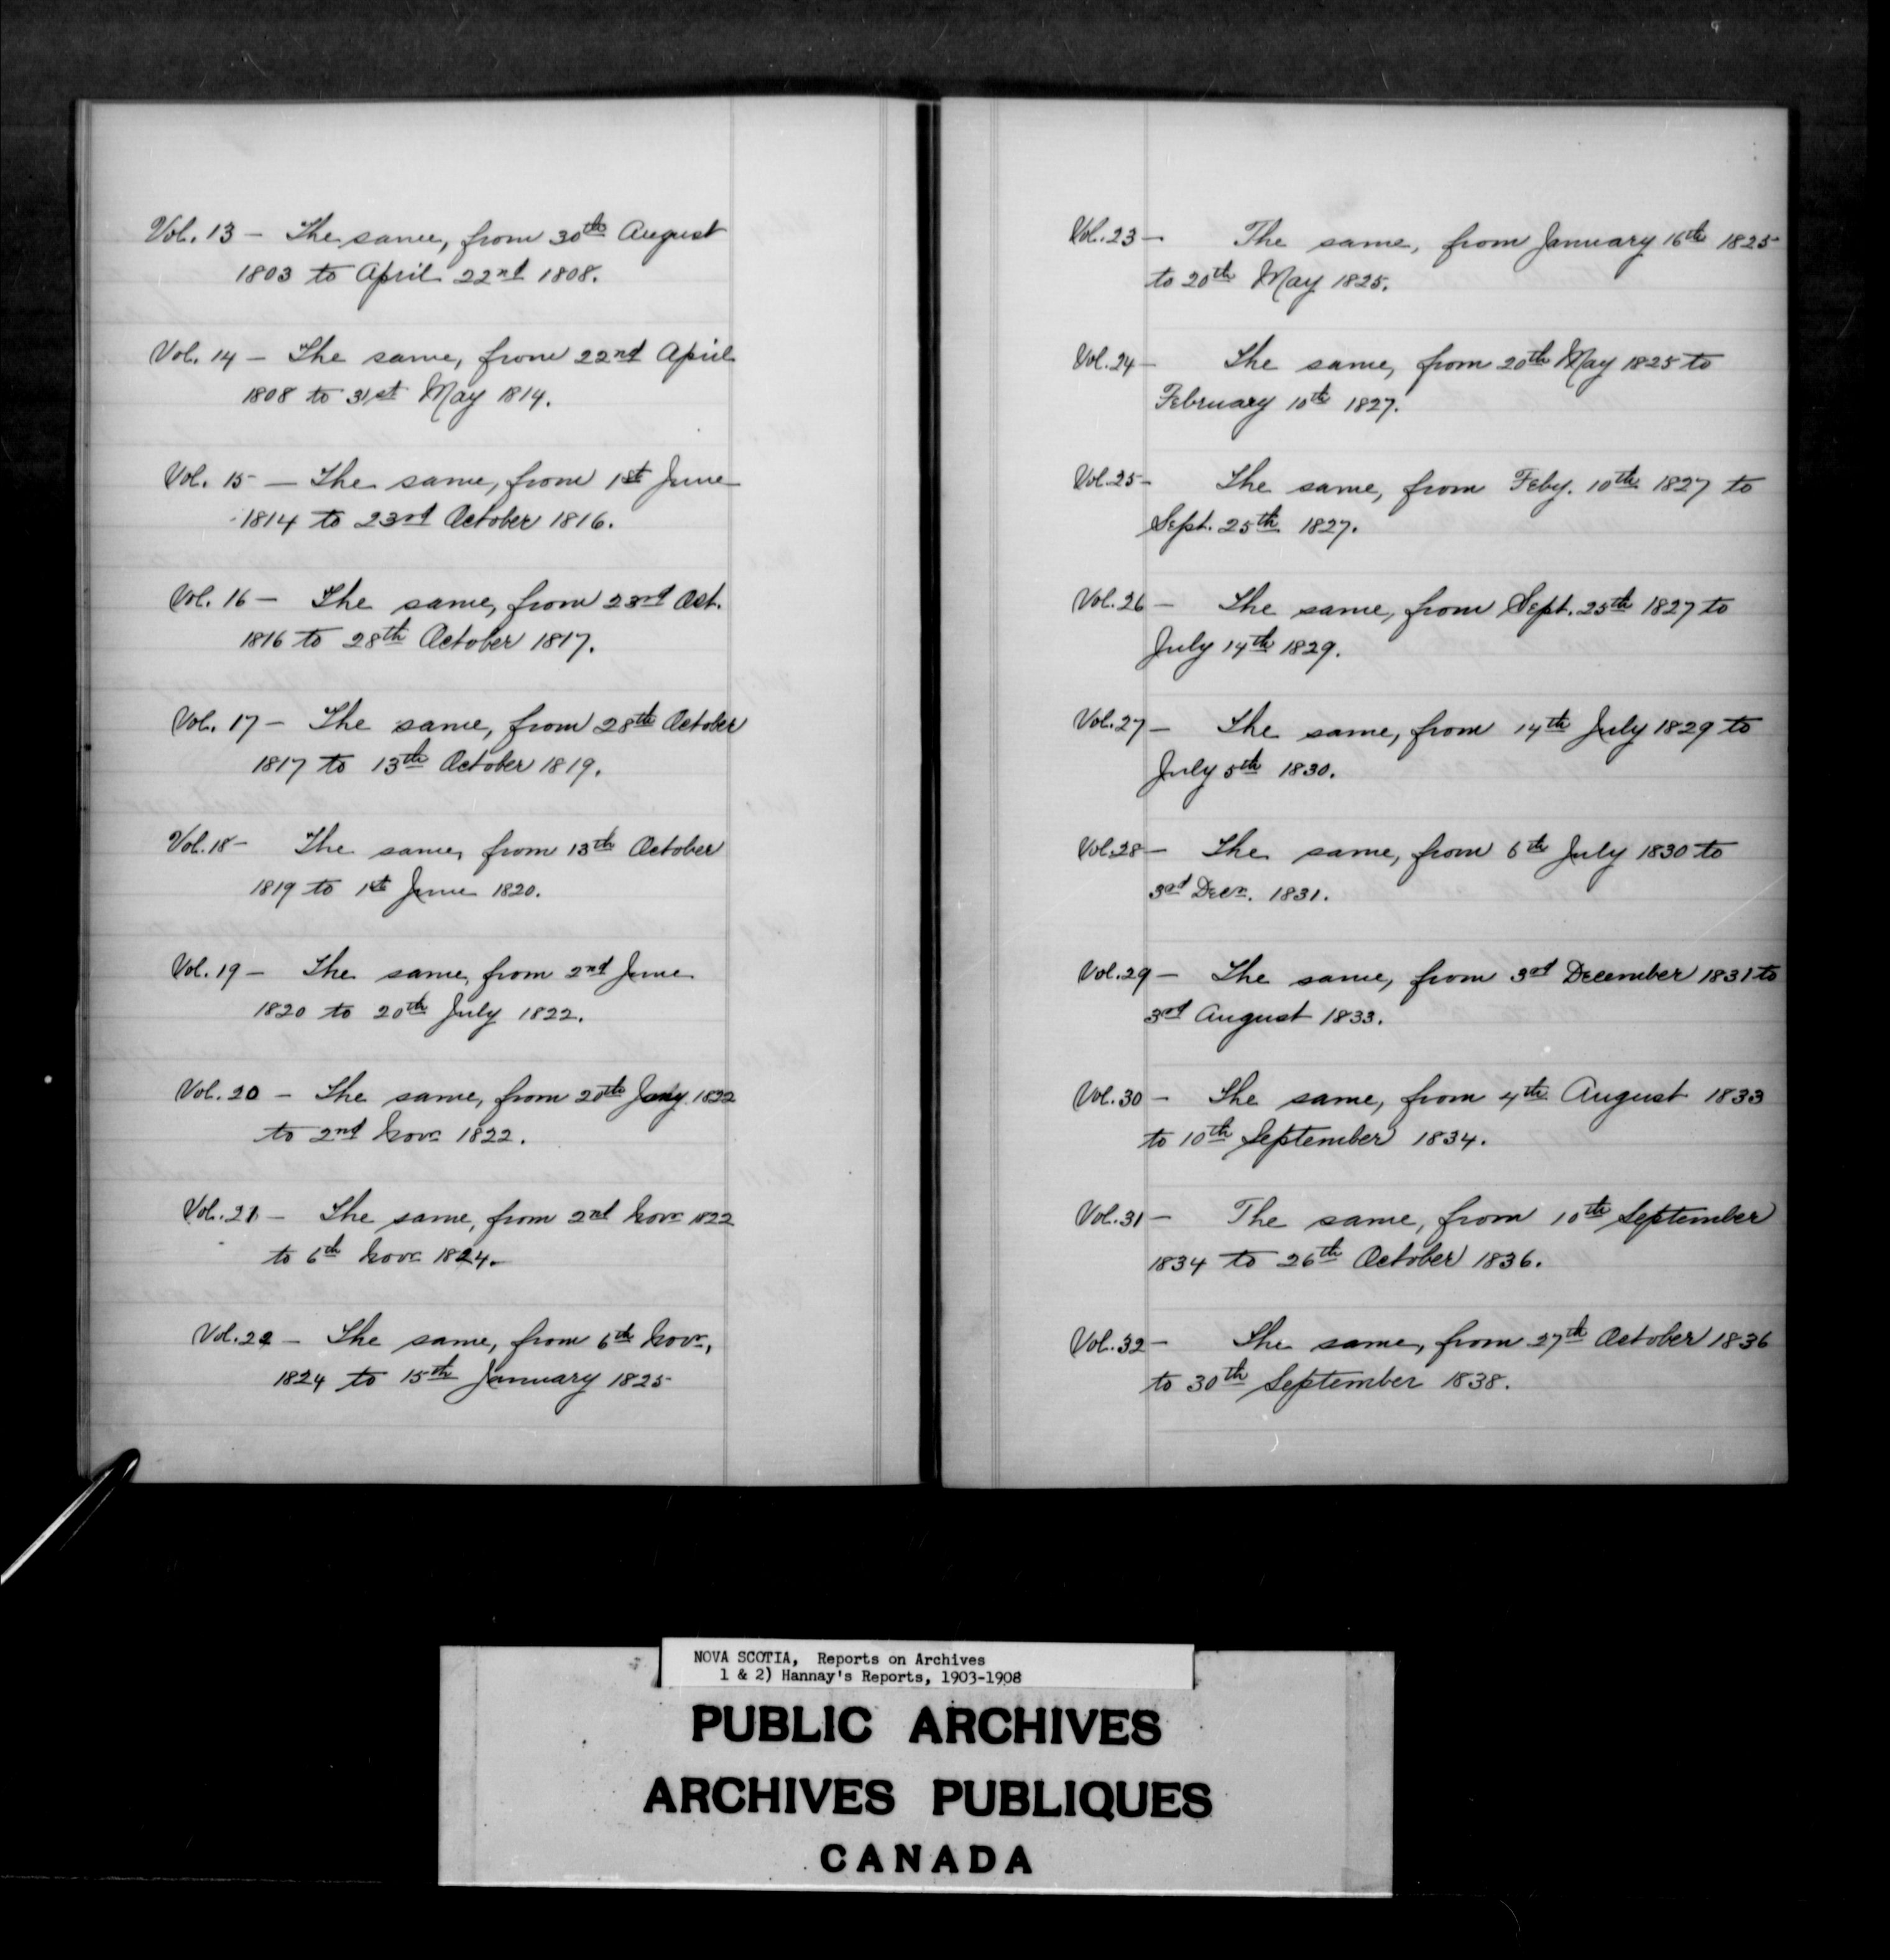 Vol. 13 — The same, from 30th August
1803 to April 22nd 1808.
Vol. 14 — The same, from 22nd April
1808 to 31st May 1814.
Vol. 15 — The same, from 1st June
1814 to 23rd October 1816.
Vol. 16 — The same, from 23rd Oct.
1816 to 28th October 1817.
Vol. 17 — The same, from 28th October
1817 to 13th October 1819.
Vol. 18 — The same, from 13th October
1819 to 1st June 1820.
Vol. 19 — The same, from 2nd June
1820 to 20th July 1822.
Vol. 20 — The same, from 20th 1822
to 2nd Novr 1822.
Vol. 21. — The same, from 2nd Novr 1822
to 6th Novr 1824.
Vol. 22 — The same, from 6th Novr,
1824 to 15th January 1825
Vol. 23 — The same, from January 16th 1825
to 20th May 1825.
Vol. 24 — The same, from 20th May 1825 to
February 10th 1827.
Vol. 25 — The same, from Feby. 10th 1827 to
Sept. 25th 1827.
Vol. 26 — The same, from Sept. 25th 1827 to
July 14th 1829.
Vol. 27 — The same, from 14th July 1829 to
July 5th 1830.
Vol. 28 — The same, from 6th July 1830 to
3rd Decr. 1831.
Vol. 29 — The same, from 3rd December 1831 to
3rd August 1833.
Vol. 30 — The same, from 4th August 1833
to 10th September 1834.
Vol. 31 — The same, from 10th September
1834 to 26th October 1836.
Vol. 32 — The same, from 27th October 1836
to 30th September 1838.
NOVA SCOTIA, Reports on Archives
1 & 2) Hannay's Reports, 1903-1908
PUBLIC ARCHIVES
ARCHIVES PUBLIQUES
CANADA